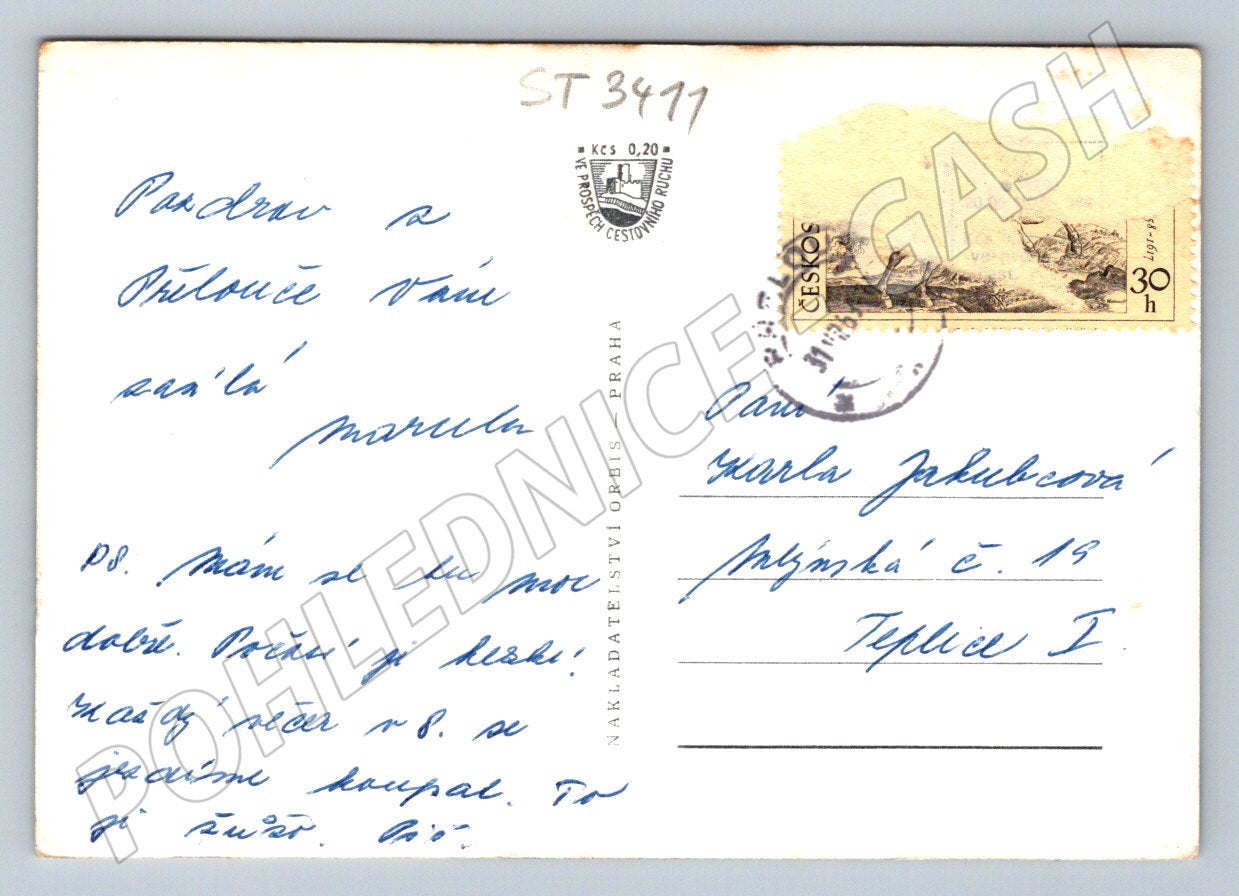 ST 3411
Kčs 0,20
VE PROSPĚCH CESTOVNÍHO RUCHU
Pozdrav z
Přelouče Vám
zasílá
Marcela
PS. Mám se tu moc
dobře. Počasí je hezké!
Každý večer v 8. se
jezdíme koupat. To
je
NAKLADATELSTVÍ ORBIS — PRAHA
ČESKOS
30
h
Paní
Karla Jakubcová
Mlýnská č. 19
Teplice I
POHLEDNICE GASH